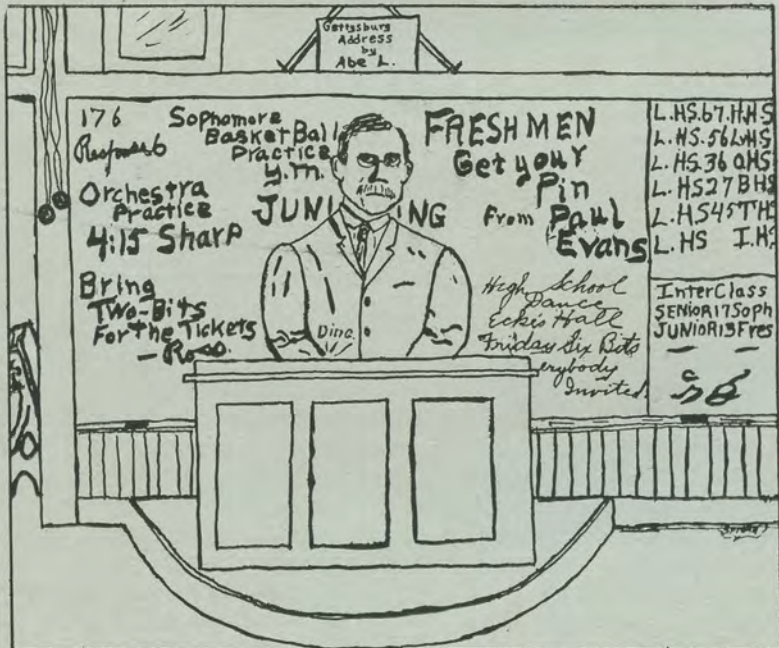 Gettysburg
Address
by
Abe L.
176
Response 6
Sophomore
BasketBall
Practice
Y.M.
Orchestra
Practice
4:15 Sharp
JUNI ING
Bring
Two-Bits
For the Tickets
— Ross.
Ding.
FRESHMEN
Get your
Pin
From Paul
Evans
High School
Dance
Eckis Hall
Friday Six Bits
erybody
Invited
L.HS.67.HHS
L.HS.56LWHS
L.HS.36OHS
L.HS27BHS
L.HS45THS
L.HS I.HS
InterClass
SENIOR17Soph
JUNIOR13Fres